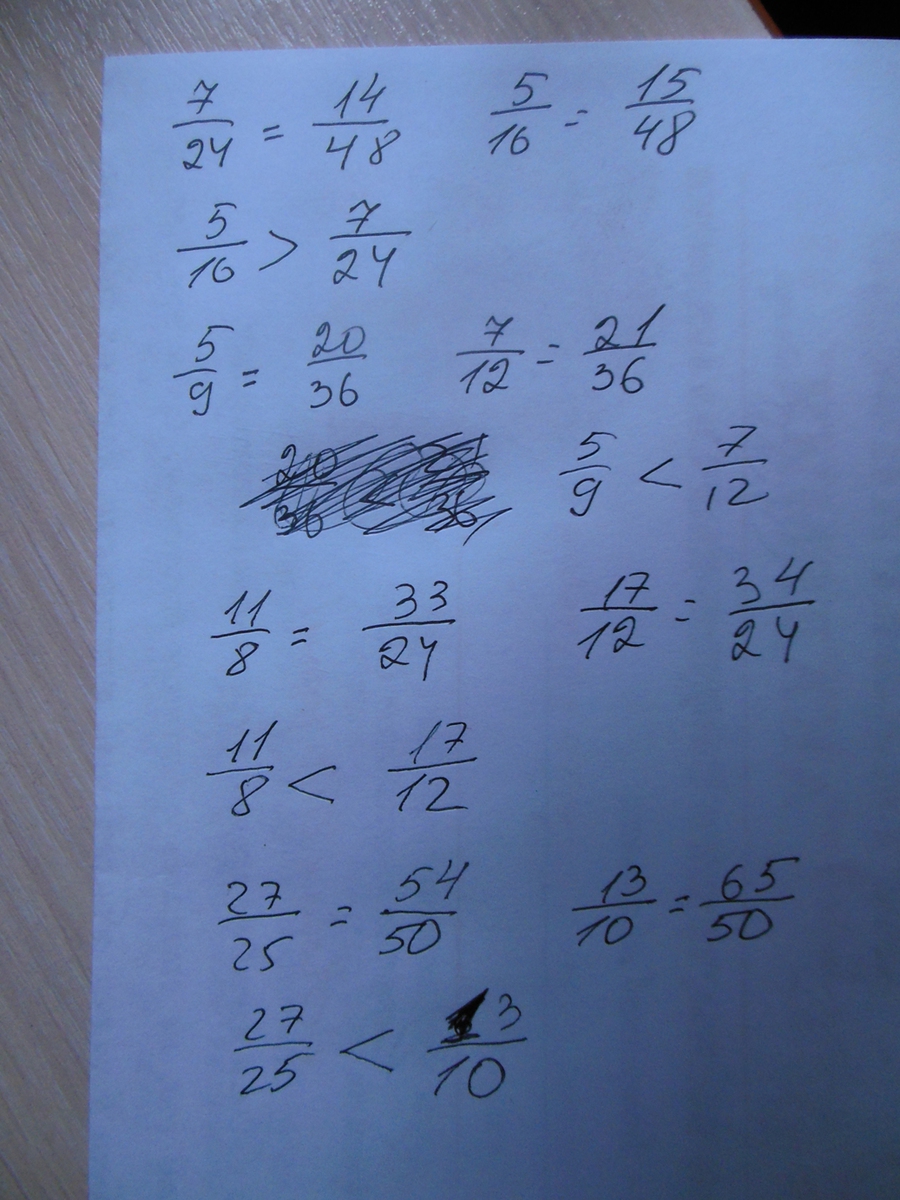 7/24 = 14/48 5/16 = 15/48
5/16 > 7/24
5/9 = 20/36 7/12 = 21/36
5/9 < 7/12
11/8 = 33/24 17/12 = 34/24
11/8 < 17/12
27/25 = 54/50 13/10 = 65/50
27/25 < 13/10